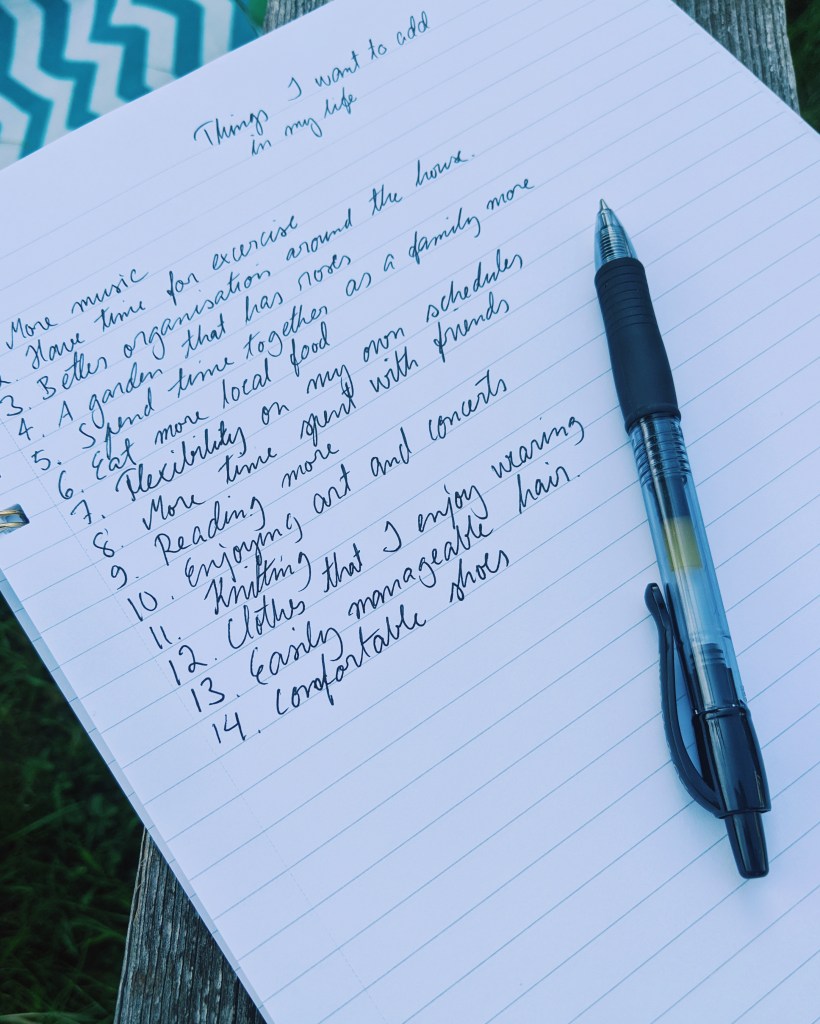 Things I want to add
in my life
More music
2. Have time for excercise
3. Better organisation around the house.
4. A garden that has roses
5. Spend time together as a family more
6. Eat more local food
7. Flexibility on my own schedules
8. More time spent with friends
9. Reading more
10. Enjoying art and concerts
11. Knitting
12. Clothes that I enjoy wearing
13. Easily manageable hair.
14. Comfortable shoes